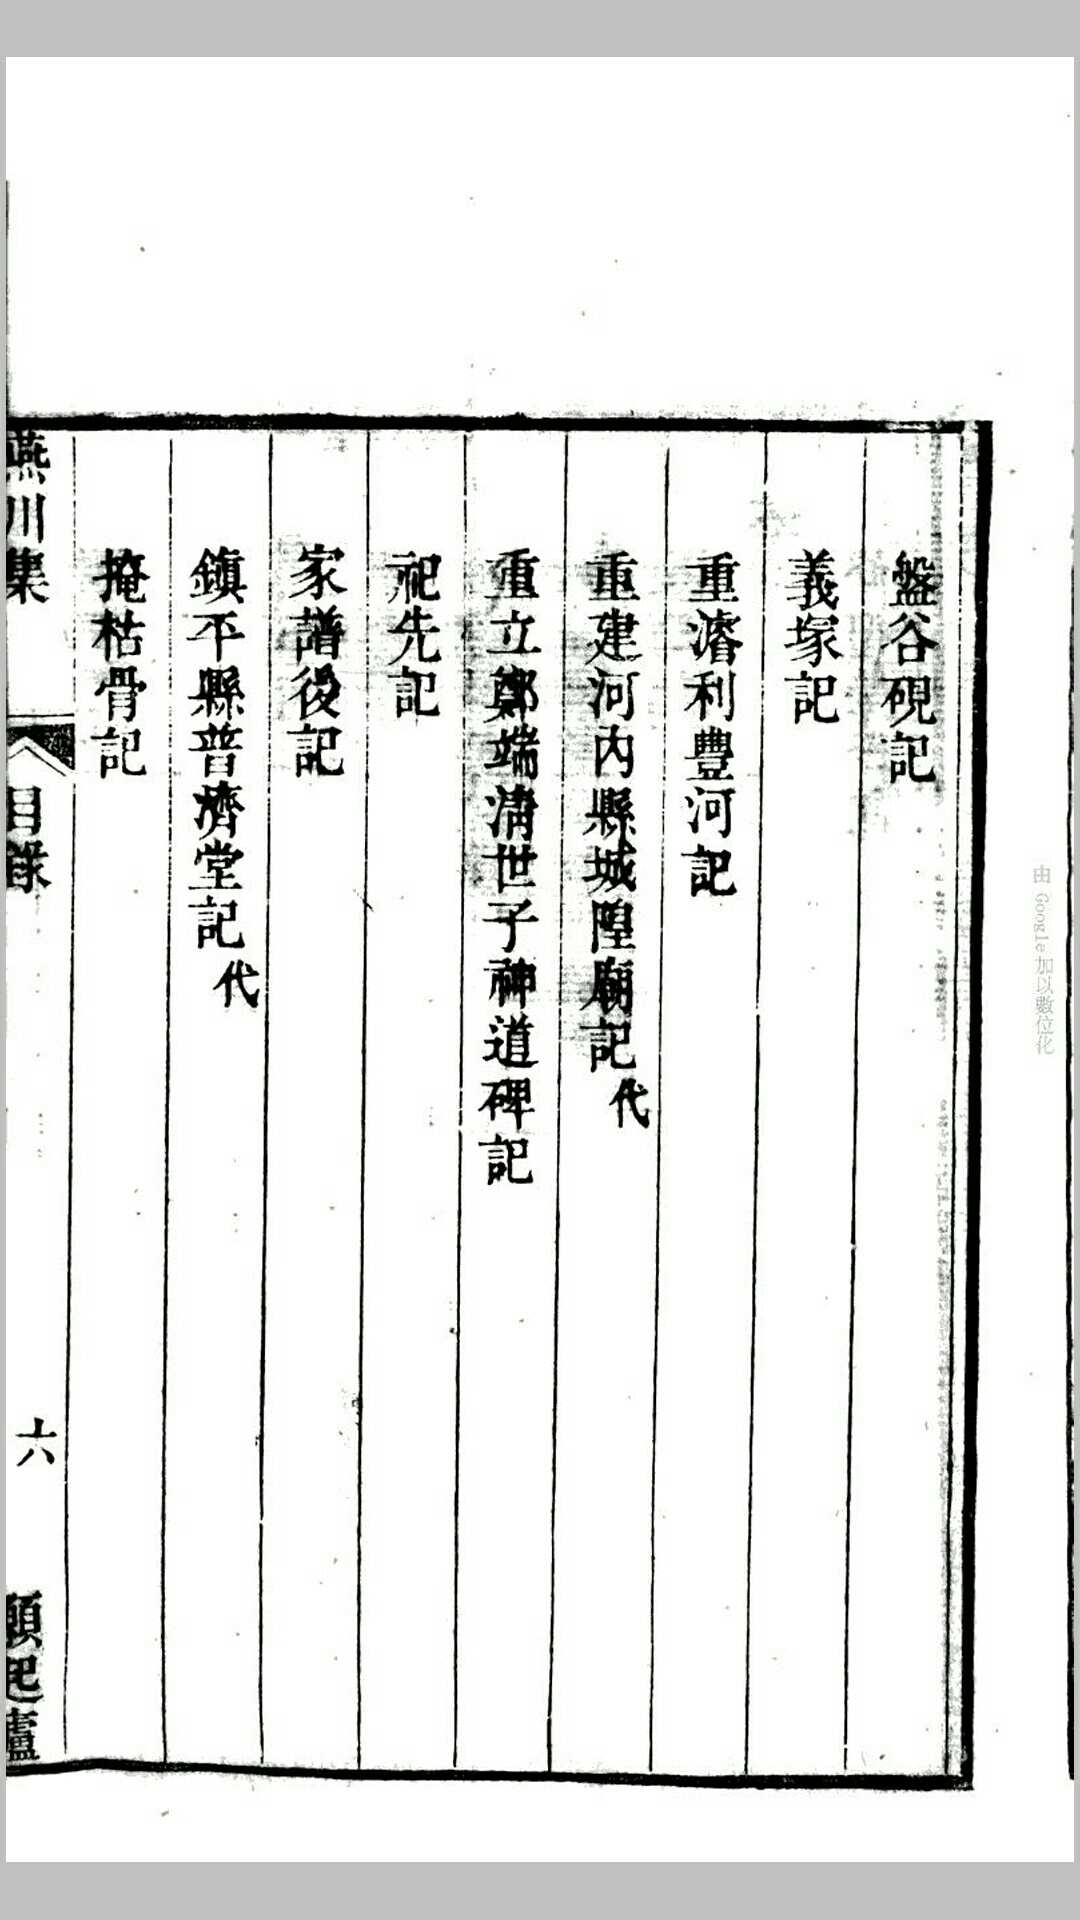 盤谷硯記
義塚記
重濬利豐河記
重建河內縣城隍廟記代
重立鄭端清世子神道碑記
祀先記
家譜後記
鎮平縣普濟堂記代
掩枯骨記
燕川集
目錄
六
願起廬
由 Google 加以數位化